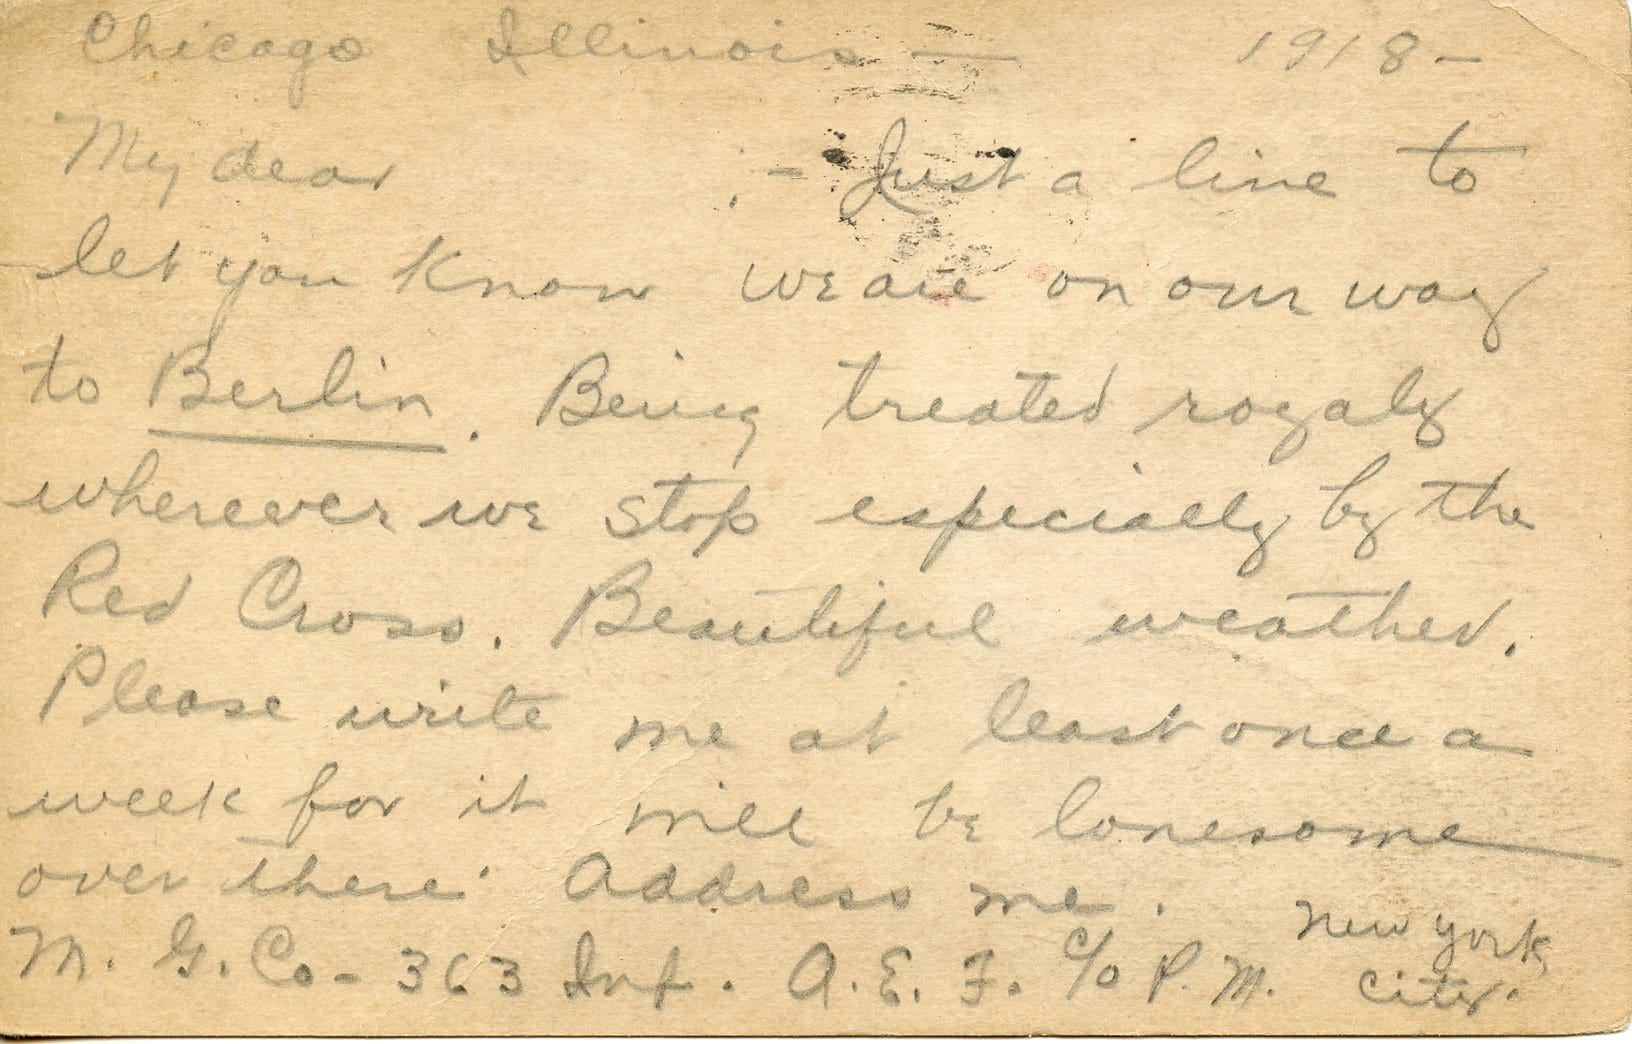 Chicago Illinois — 1918 -
My dear . - Just a line to
let you know we are on our way
to Berlin. Being treated royaly
wherever we stop especially by the
Red Cross. Beautiful weather.
Please write me at least once a
week for it will be lonesome
over there. Address me.
M. G. Co - 363 Inf. A. E. F. c/o P. M. New York
City.